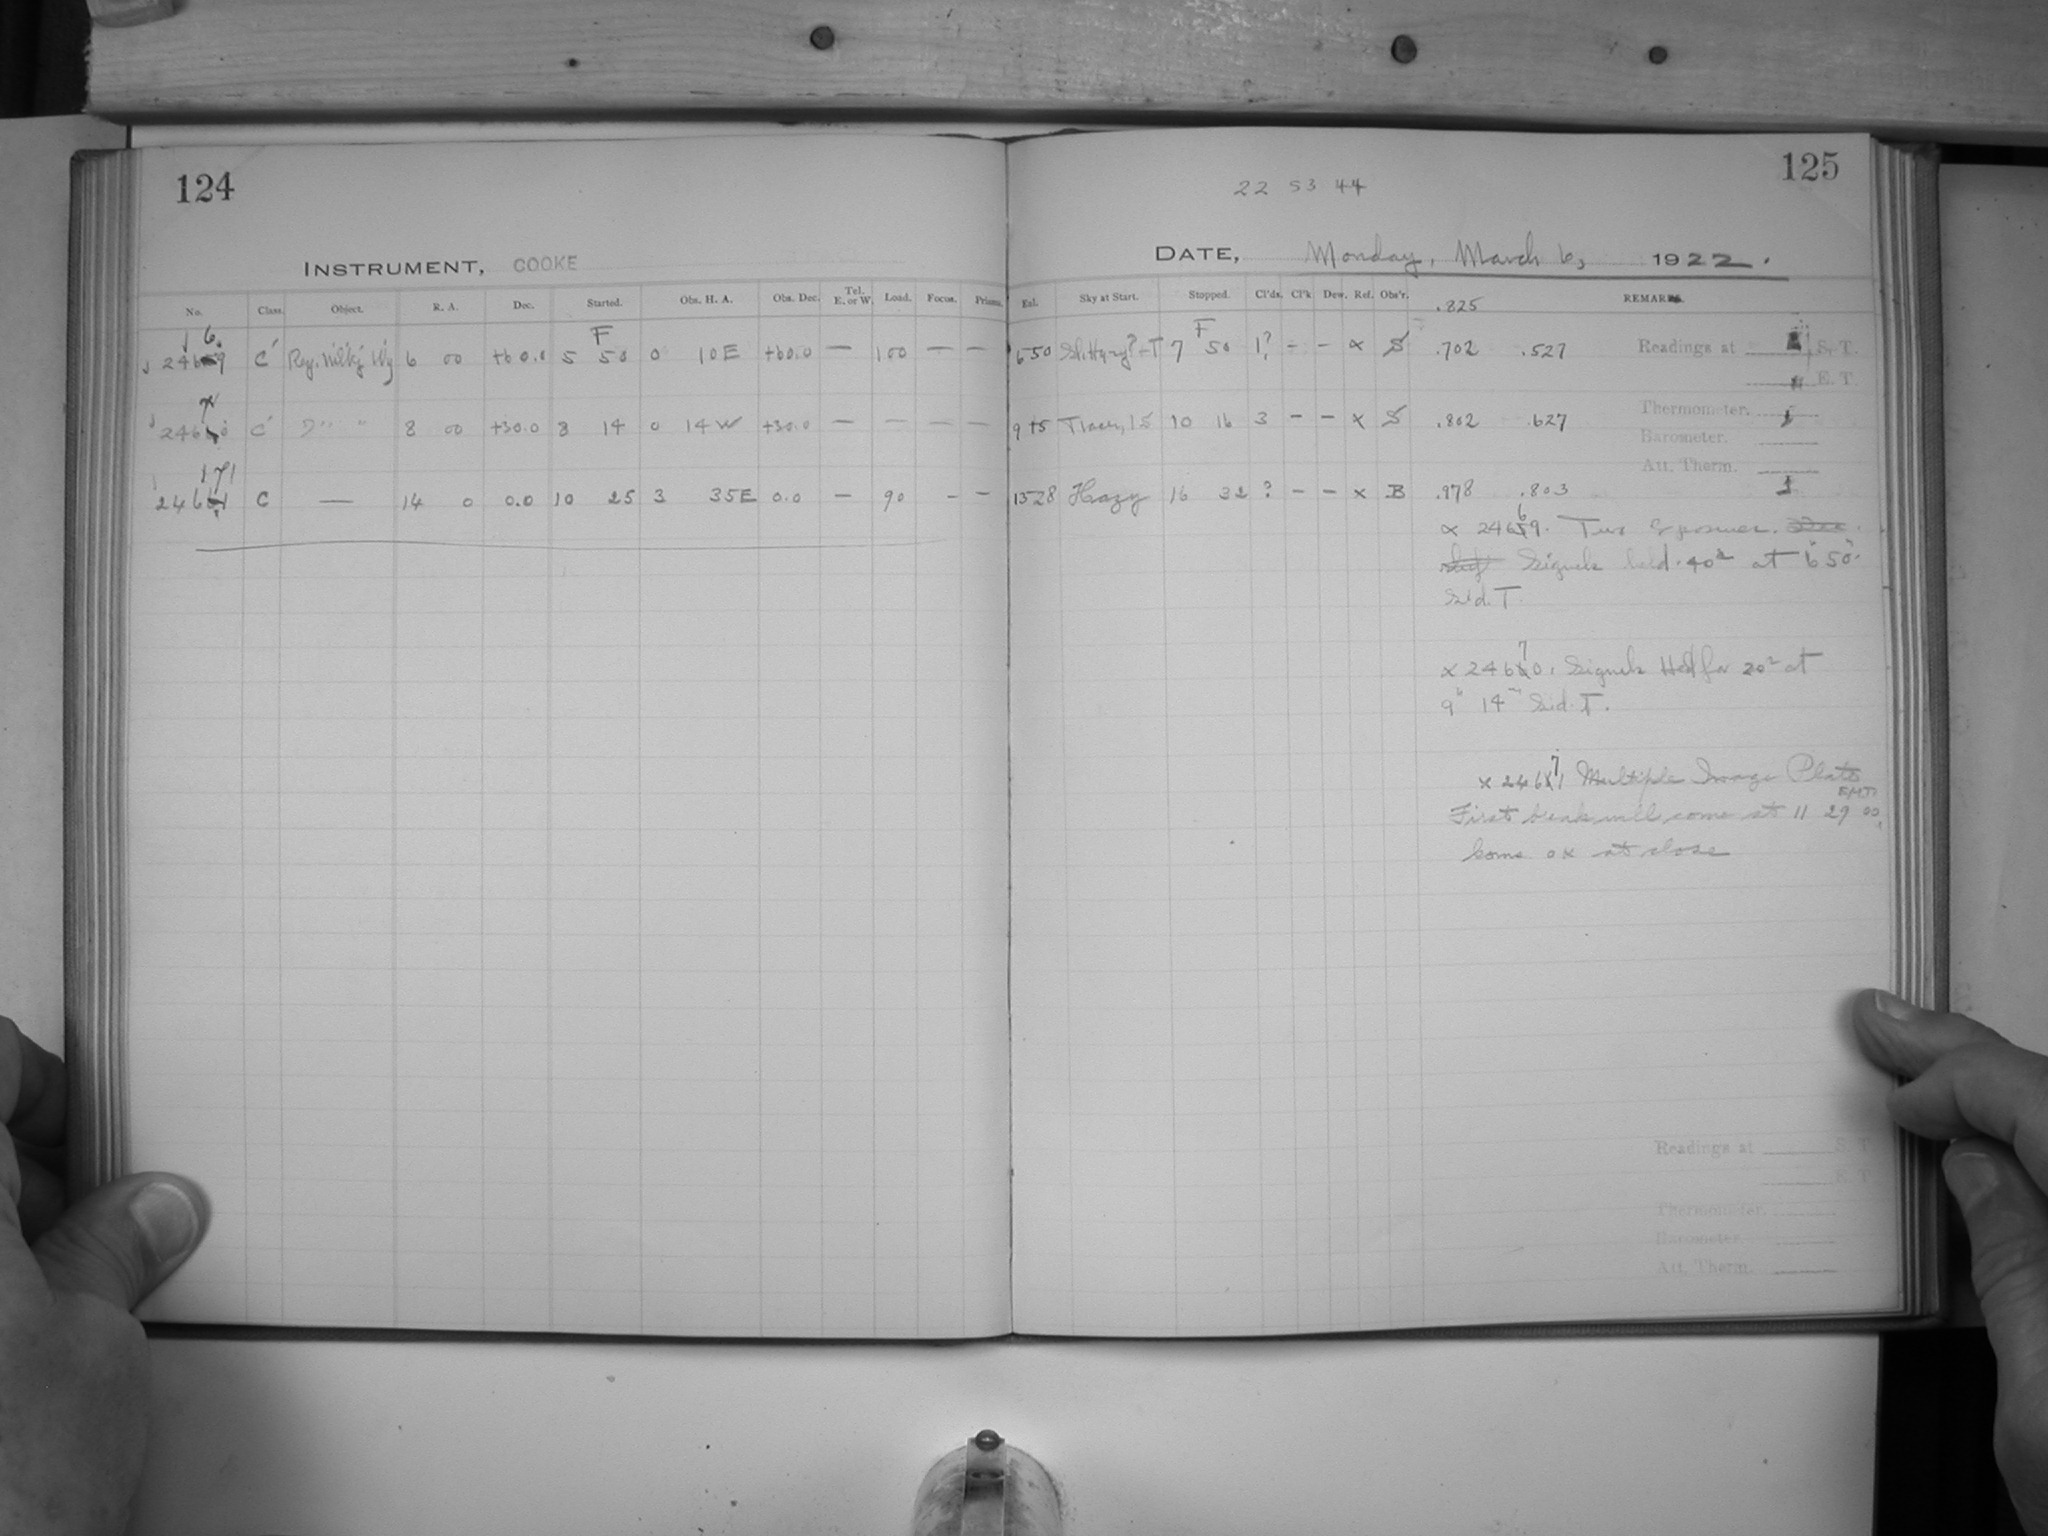 124
INSTRUMENT, COOKE
No. Class. Object. R. A. Dec. Started. Obs. H. A. Obs. Dec. Tel. E. or W. Load. Focus. Prisms.
F
6
24659 C' Reg. Milky Wy 6 00 +60.0 5 50 0 10 E +60.0 — 100 — —
7
24660 C' " " 8 00 +30.0 8 14 0 14 W +30.0 — — — —
71
24661 C — 14 0 0.0 10 25 3 35 E 0.0 — 90 - —
125
22 53 44
DATE, Monday, March 6, 1922.
Exl. Sky at Start. Stopped. Cl'ds. Cl'k Dew. Ref. Obs'r. REMARKS.
.825
F
6 50 Sl. Hazy? 7 50 1? - - x S .702 .527
Readings at S. T.
E. T.
9 15 10 16 3 - - x S .802 .627
Thermometer.
Barometer.
Att. Therm.
13 28 Hazy 16 32 ? - - x B .978 .803
6
x 24659. Two Exposures.
Signals held 40s at 6h 50m
Sid. T.
7
x 24660. Signals Held for 20s at
9h 14m Sid. T.
7
x 24661 Multiple Image Plate
First break will come at 11 29 00
Dome ok at close
Readings at S. T
E. T
Thermometer.
Barometer.
Att. Therm.